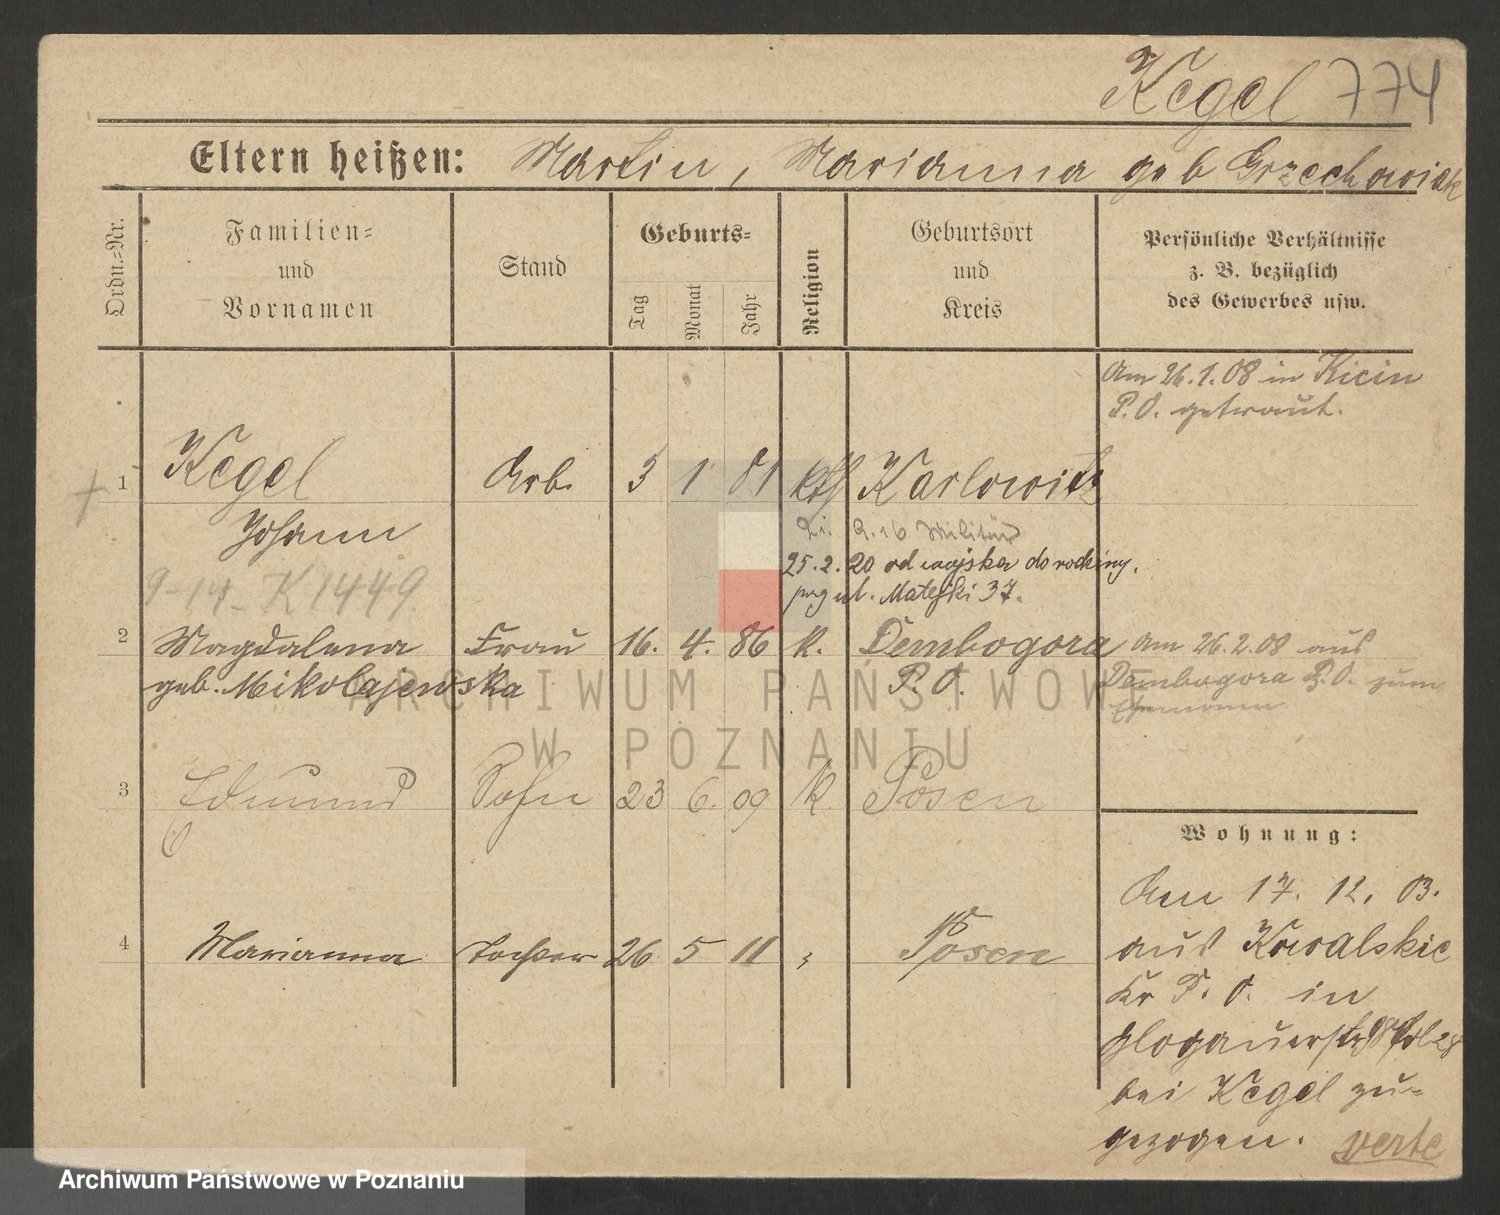 Kegel 774
Eltern heißen: Martin, Marianna geb Grzechowiak
Ordn.-Nr.
Familien-
und
Vornamen
Stand
Geburts-
Tag
Monat
Jahr
Religion
Geburtsort
und
Kreis
Persönliche Verhältnisse
z. B. bezüglich
des Gewerbes usw.
Am 26.1.08 in Kicin
P.O. getraut.
1 Kegel Arb. 5 1 81 kth Karlowitz
Johann
9.16 Militär
25.2.20 od wojska do rodziny.
przy ul. Matejki 37.
9-14- K1449.
2 Magdalena Frau 16. 4. 86 K. Dembogora
geb. Mikolajewska P.O.
Am 26.2.08 aus
Dembogora P.O. zum
Ehemann
3 Edmund Sohn 23 6. 09 K Posen
4 Marianna Tochter 26 5 11 " Posen
Wohnung:
Am 17. 12. 03.
aus Kowalskie
Kr P. O. in
Glogauerstr
bei Kegel zu-
gezogen. verte
ARCHIWUM PAŃSTWOWE
W POZNANIU
Archiwum Państwowe w Poznaniu